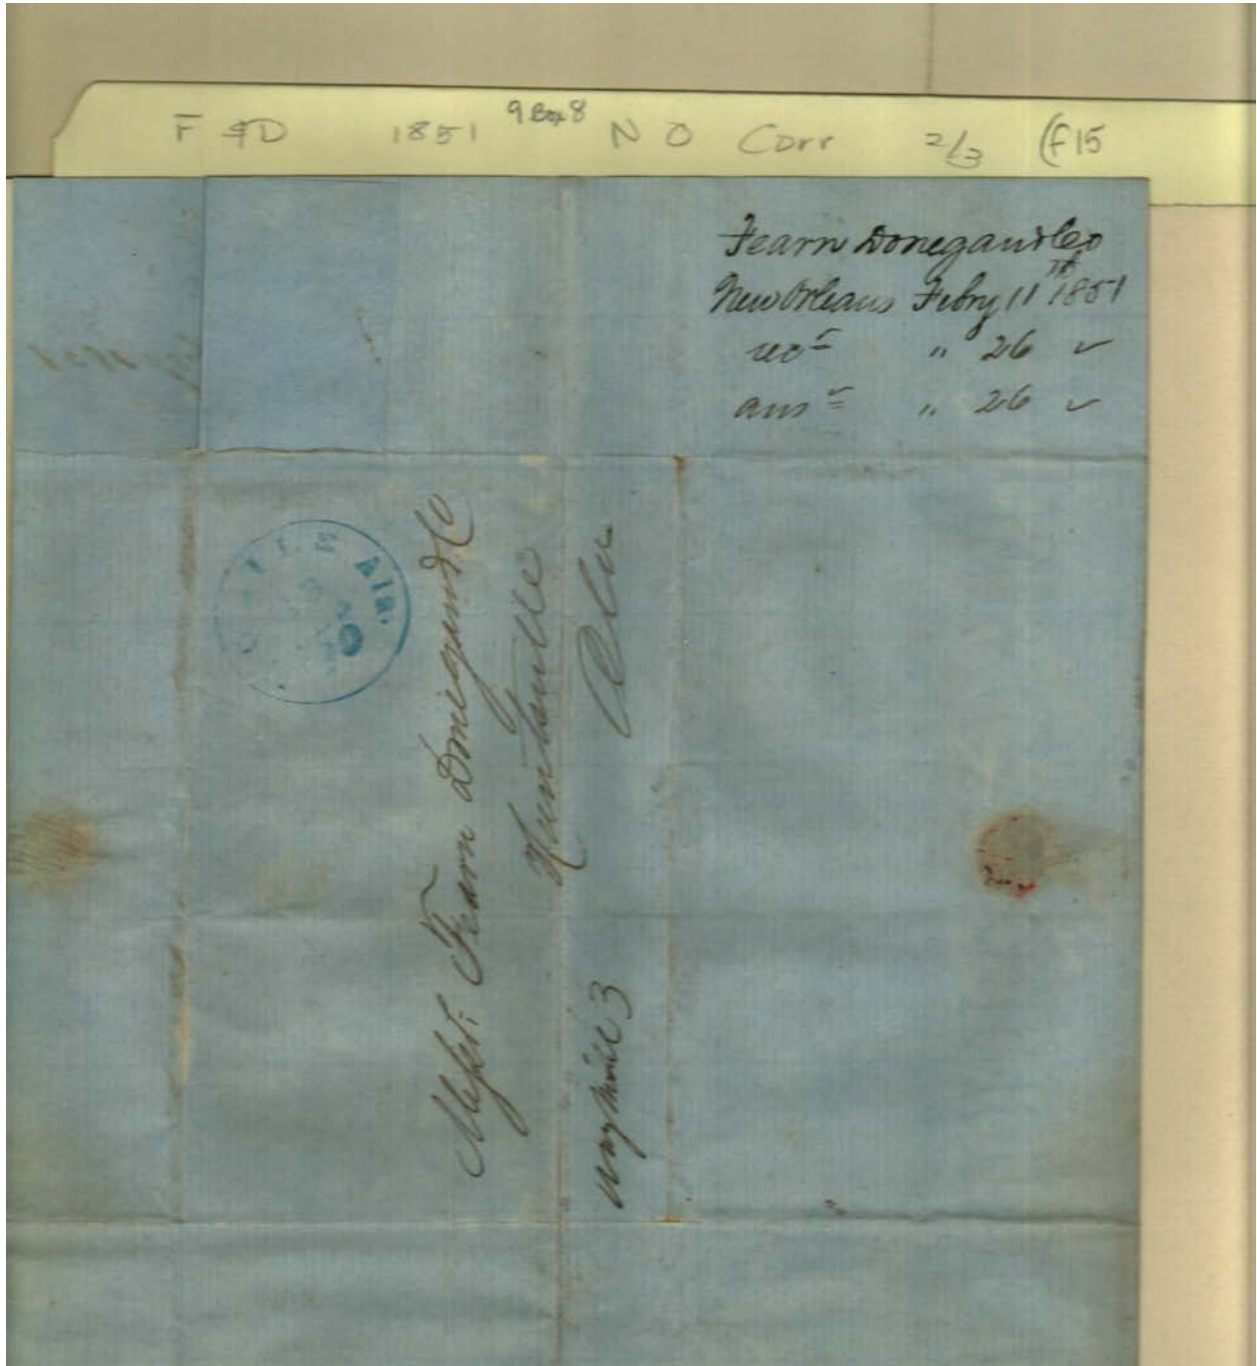 F & D 1851 9 Box 8 N O Corr 2/3 (F15
Fearn Donegan & Co
New Orleans Febry 11th 1851
recd " 26 ✓
ansd " 26 ✓
Ala.
Messrs. Fearn Donegan & Co
Huntsville
Ala